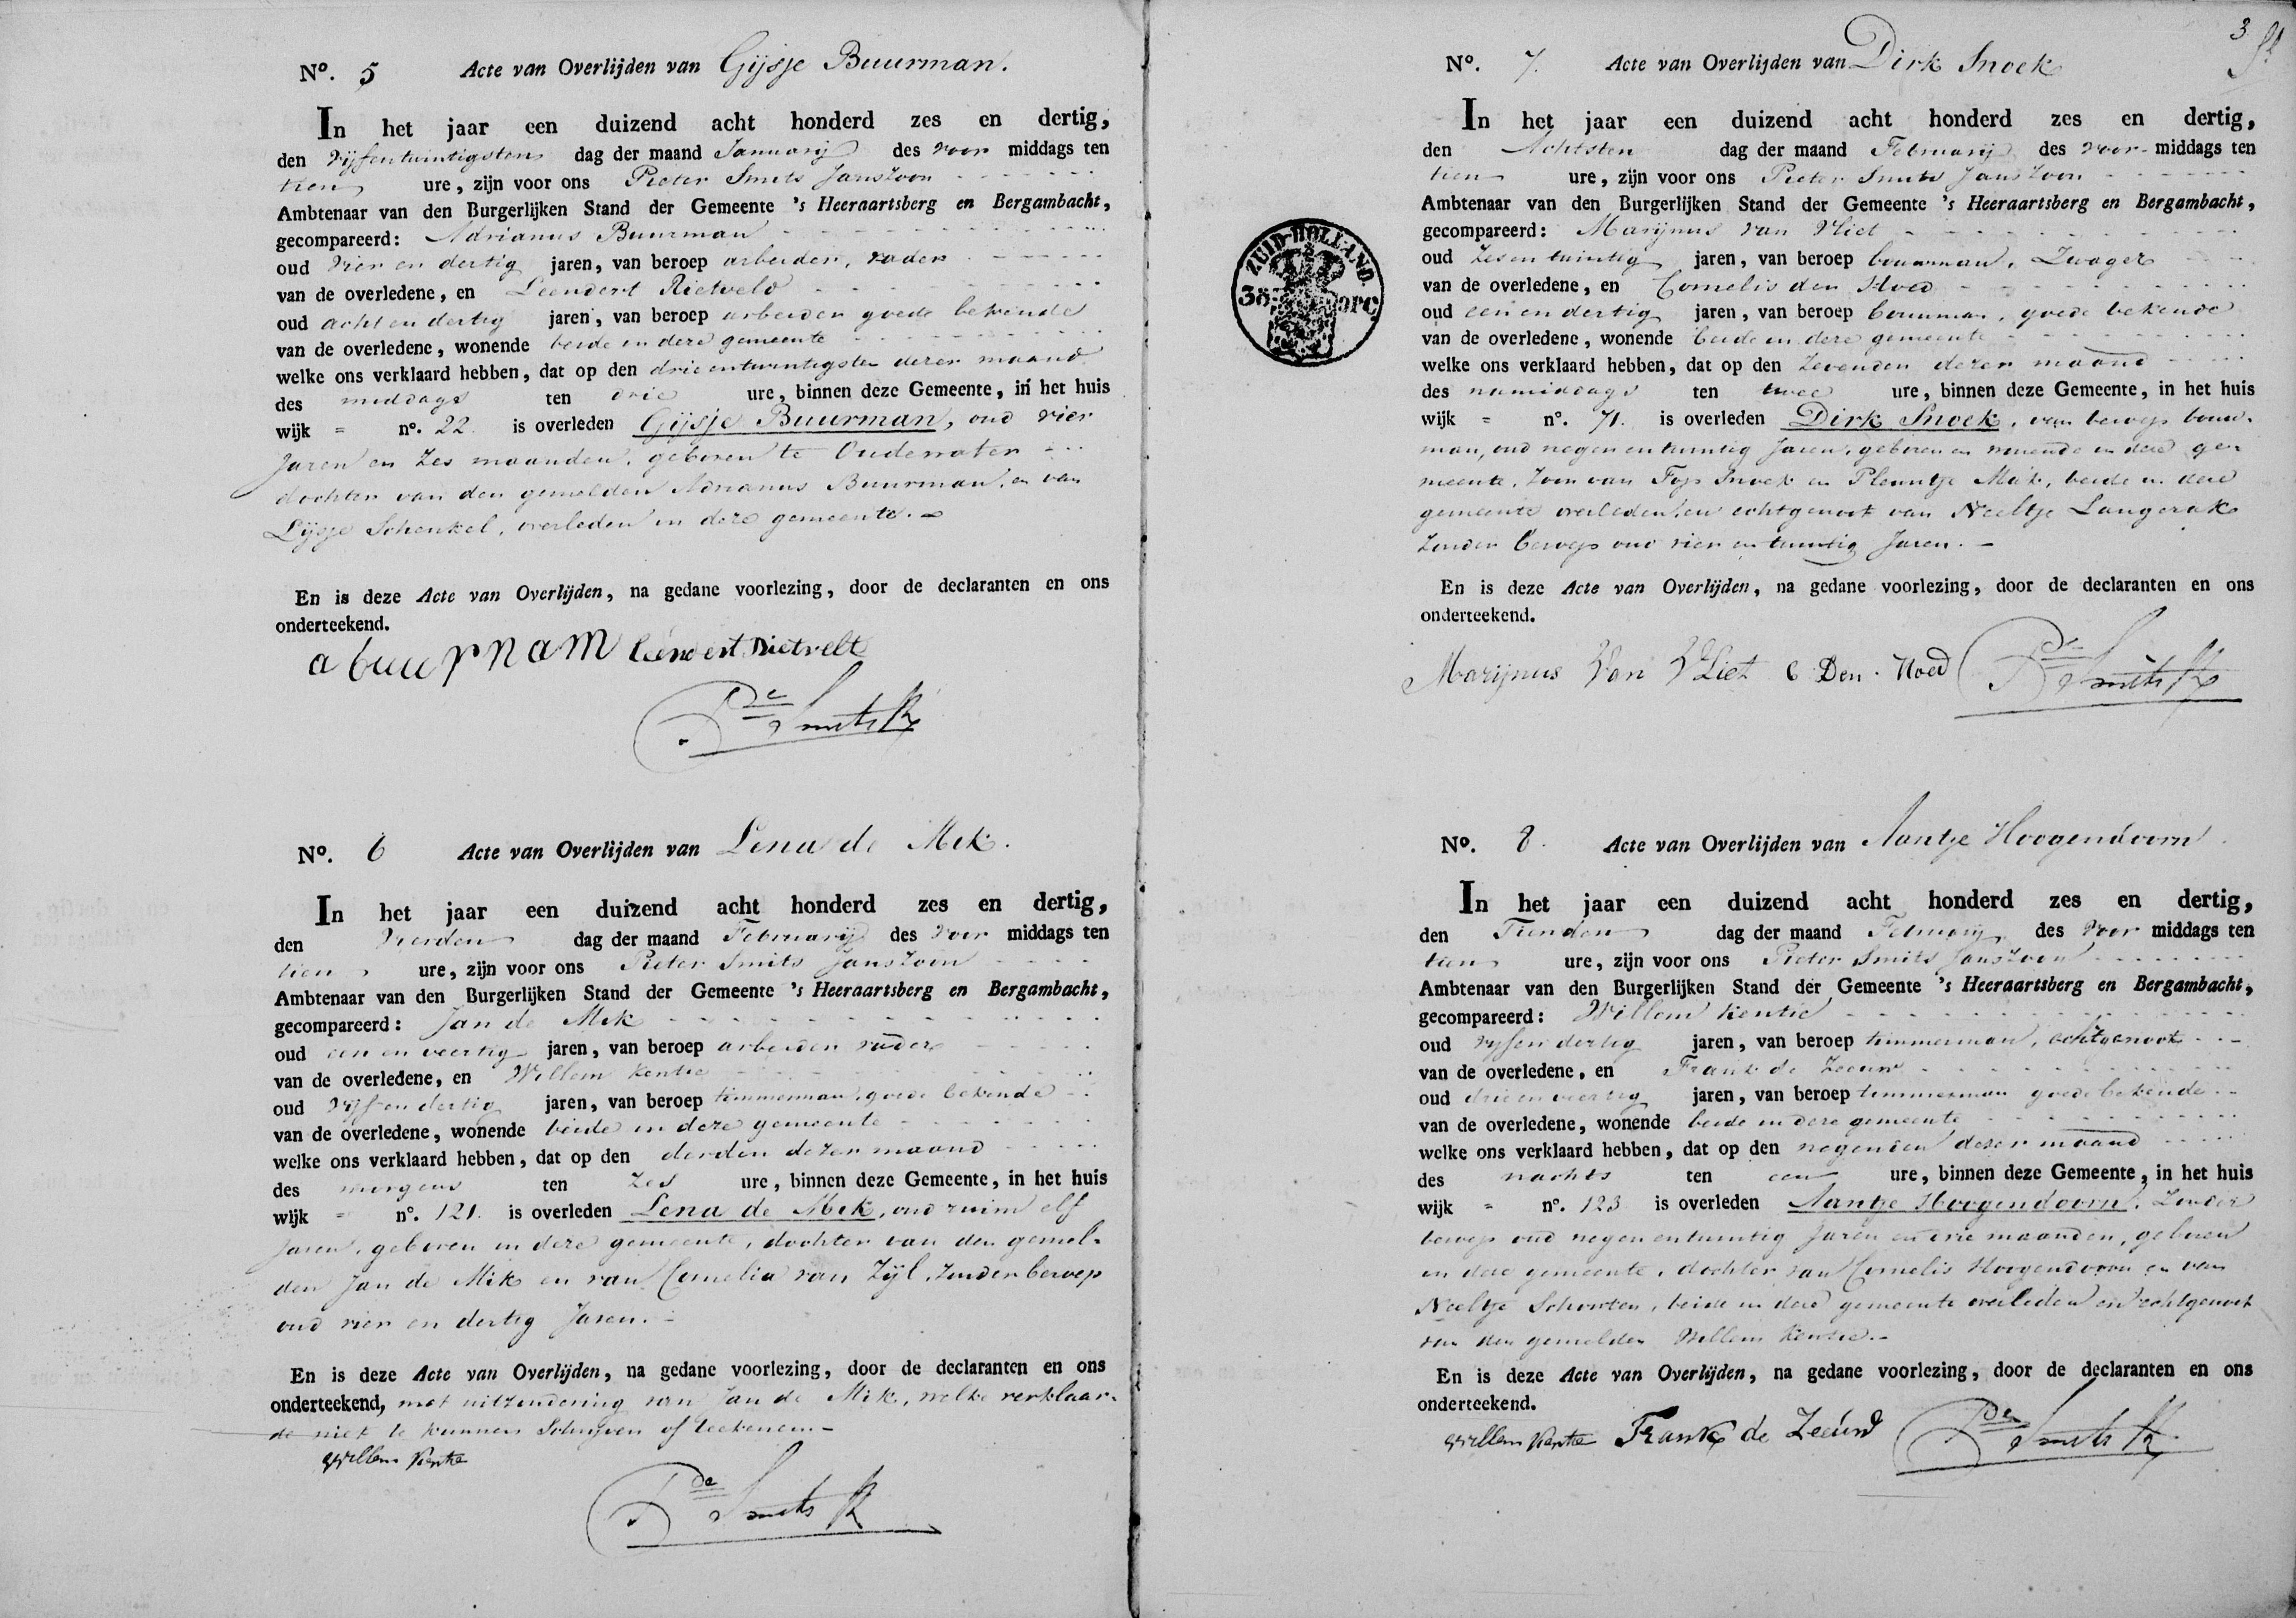 Nº. 5 Acte van Overlijden van Gijsje Buurman.
In het jaar een duizend acht honderd zes en dertig,
den vijfentwintigsten dag der maand Januarij des voor middags ten
tien ure, zijn voor ons Pieter Smits Janszoon
Ambtenaar van den Burgerlijken Stand der Gemeente 's Heeraartsberg en Bergambacht,
gecompareerd: Adrianus Buurman
oud vier en dertig jaren, van beroep arbeider, vader
van de overledene, en Leendert Rietveld
oud acht en dertig jaren, van beroep arbeider goede bekende
van de overledene, wonende beide in deze gemeente
welke ons verklaard hebben, dat op den drieentwintigsten dezer maand
des middags ten drie ure, binnen deze Gemeente, in het huis
wijk = nº. 22. is overleden Gijsje Buurman, oud vier
Jaren en zes maanden, geboren te Oudewater
dochter van den gemelden Adrianus Buurman, en van
Lijsje Schenkel, overleden in deze gemeente.
En is deze Acte van Overlijden, na gedane voorlezing, door de declaranten en ons
onderteekend.
a buurman Leendert Rietvelt
Pr Smits Jz
Nº. 6 Acte van Overlijden van Lena de Mik.
In het jaar een duizend acht honderd zes en dertig,
den Vierden dag der maand Februarij des voor middags ten
tien ure, zijn voor ons Pieter Smits Janszoon
Ambtenaar van den Burgerlijken Stand der Gemeente 's Heeraartsberg en Bergambacht,
gecompareerd: Jan de Mik
oud een en veertig jaren, van beroep arbeider vader
van de overledene, en Willem Kentie
oud vijf en dertig jaren, van beroep timmerman, goede bekende
van de overledene, wonende beide in deze gemeente
welke ons verklaard hebben, dat op den derden dezer maand
des morgens ten zes ure, binnen deze Gemeente, in het huis
wijk = nº. 121. is overleden Lena de Mik, oud ruim elf
Jaren, geboren in deze gemeente, dochter van den gemel-
den Jan de Mik en van Cornelia van Zijl, zonder beroep
oud vier en dertig Jaren.
En is deze Acte van Overlijden, na gedane voorlezing, door de declaranten en ons
onderteekend, met uitzondering van Jan de Mik, welke verklaar-
de niet te kunnen Schrijven of teekenen.
Willem Kentie
Pr Smits Jz
3
Nº. 7. Acte van Overlijden van Dirk Snoek
In het jaar een duizend acht honderd zes en dertig,
den Achtsten dag der maand Februarij des voor middags ten
tien ure, zijn voor ons Pieter Smits Janszoon
Ambtenaar van den Burgerlijken Stand der Gemeente 's Heeraartsberg en Bergambacht,
gecompareerd: Marijnus van Vliet
oud zesentwintig jaren, van beroep bouwman, Zwager
van de overledene, en Cornelis den Hoed
oud een en dertig jaren, van beroep bouwman, goede bekende
van de overledene, wonende beide in deze gemeente
welke ons verklaard hebben, dat op den zevenden dezer maand
des namiddags ten twee ure, binnen deze Gemeente, in het huis
wijk = nº. 71. is overleden Dirk Snoek, van beroep bouw-
man, oud negen en twintig Jaren, geboren en wonende in deze ge-
meente, Zoon van Fop Snoek en Pleuntje Mak, beide in deze
gemeente overleden, en echtgenoot van Neeltje Langerak
zonder beroep oud vier en twintig Jaren.
En is deze Acte van Overlijden, na gedane voorlezing, door de declaranten en ons
onderteekend.
Marijnus Van Vliet C Den Hoed Pr Smits Jz
ZUID-HOLLAND
Nº. 8. Acte van Overlijden van Aantje Hoogendoorn
In het jaar een duizend acht honderd zes en dertig,
den Tienden dag der maand Februarij des voor middags ten
tien ure, zijn voor ons Pieter Smits Janszoon
Ambtenaar van den Burgerlijken Stand der Gemeente 's Heeraartsberg en Bergambacht,
gecompareerd: Willem Kentie
oud vijf en dertig jaren, van beroep timmerman, echtgenoot
van de overledene, en Frank de Zeeuw
oud drie en veertig jaren, van beroep timmerman goede bekende
van de overledene, wonende beide in deze gemeente
welke ons verklaard hebben, dat op den negenden dezer maand
des nachts ten een ure, binnen deze Gemeente, in het huis
wijk = nº. 123 is overleden Aantje Hoogendoorn, Zonder
beroep oud negen en twintig Jaren en drie maanden, geboren
in deze gemeente, dochter van Cornelis Hoogendoorn en van
Neeltje Schouten, beide in deze gemeente overleden en echtgenoot
van den gemelden Willem Kentie.
En is deze Acte van Overlijden, na gedane voorlezing, door de declaranten en ons
onderteekend.
Willem Kentie Frank de Zeeuw Pr Smits Jz